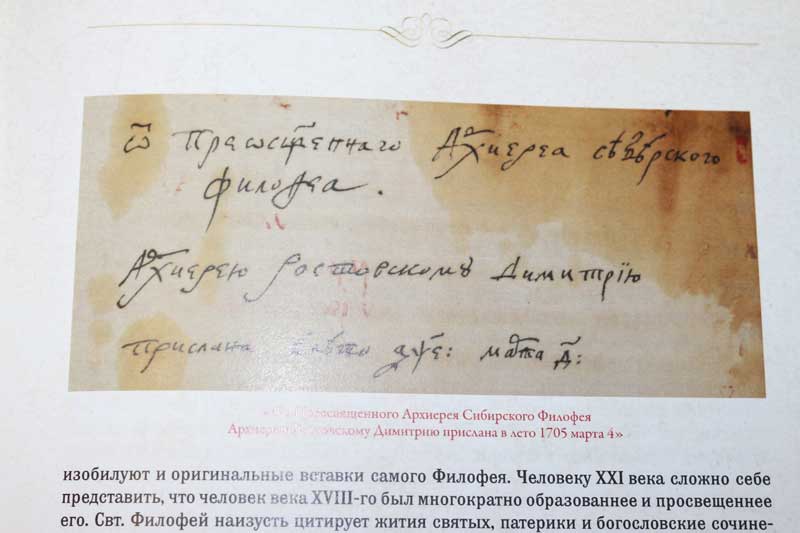 Ѿ преѡсщ҃еннаго Архиереа сѣбѣрского
филоѳеа.
Архиерею ростовскомꙋ Димитрїю
прислана влѣто ҂аѱ҃е: марта д҃:
«От Преосвященного Архиерея Сибирского Филофея
Архиерею Ростовскому Димитрию прислана в лето 1705 марта 4»
изобилуют и оригинальные вставки самого Филофея. Человеку XXI века сложно себе
представить, что человек века XVIII-го был многократно образованнее и просвещеннее
его. Свт. Филофей наизусть цитирует жития святых, патерики и богословские сочине-